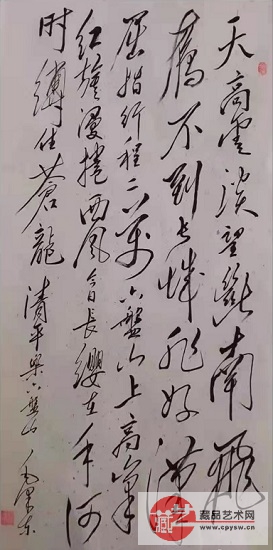 天高雲淡望斷南飛
雁不到長城非好漢
屈指行程二萬六盤山上高峯
红旗漫捲西風今日長纓在手何
时縛住蒼龍 清平樂六盤山 毛澤東
藏品艺术网
www.cpysw.cn